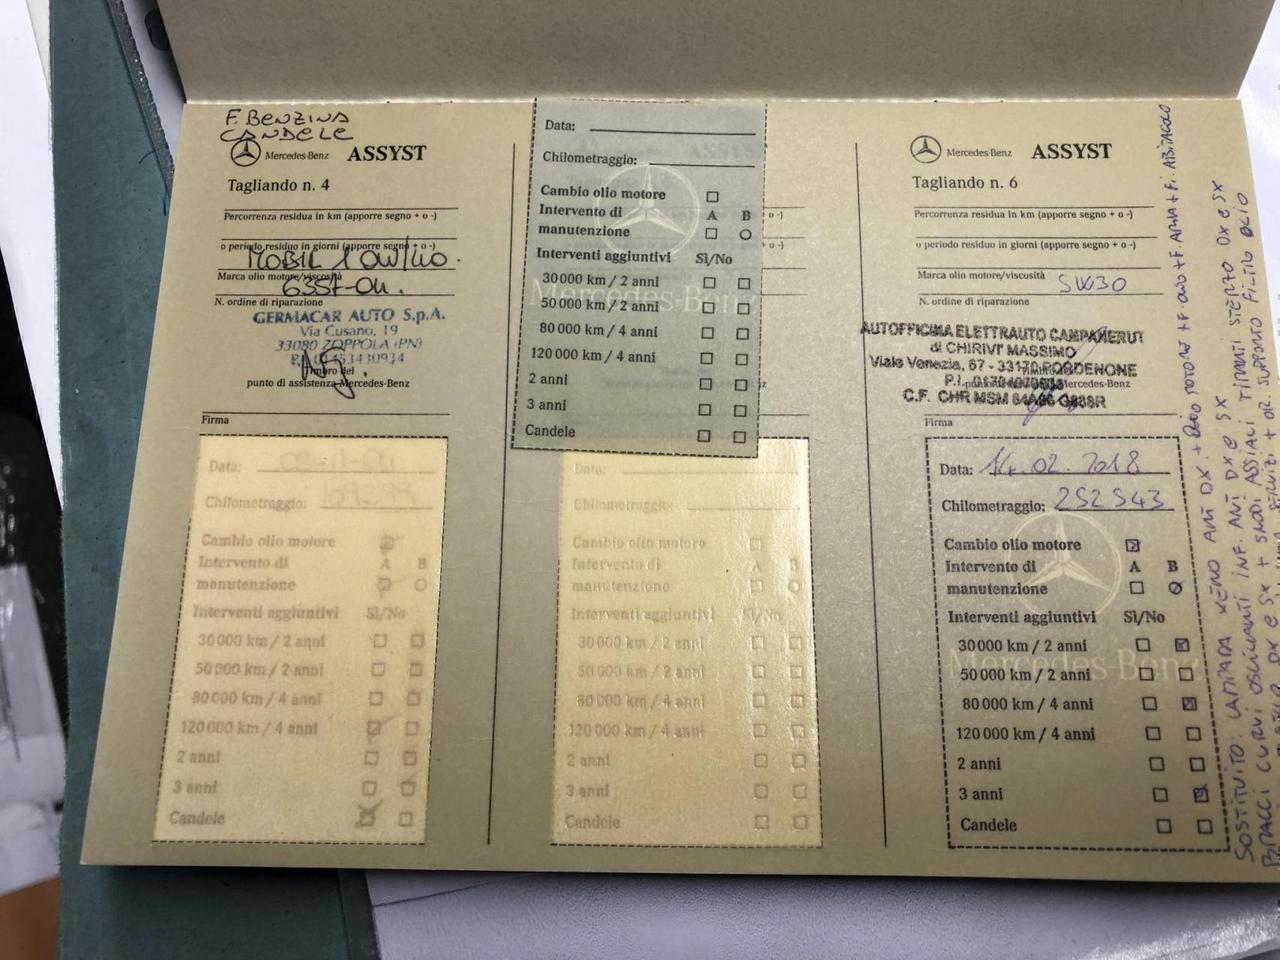 F. BENZINA
CANDELE
Mercedes-Benz ASSYST
Tagliando n. 4
Percorrenza residua in km (apporre segno + o -)
o periodo residuo in giorni (apporre segno + o -)
MOBIL 1 0W/40.
Marca olio motore/viscosità
N. ordine di riparazione
GERMACAR AUTO S.p.A.
Via Cusano, 19
33080 ZOPPOLA (PN)
Timbro del
punto di assistenza Mercedes-Benz
Firma
Data:
Chilometraggio:
Cambio olio motore
Intervento di A B
manutenzione
Interventi aggiuntivi Sì/No
30 000 km / 2 anni
50 000 km / 2 anni
80 000 km / 4 anni
120 000 km / 4 anni
2 anni
3 anni
Candele
Data:
Chilometraggio:
Cambio olio motore
Intervento di A B
manutenzione
Interventi aggiuntivi Sì/No
30 000 km / 2 anni
50 000 km / 2 anni
80 000 km / 4 anni
120 000 km / 4 anni
2 anni
3 anni
Candele
Data:
Chilometraggio:
Cambio olio motore
Intervento di A B
manutenzione
Interventi aggiuntivi Sì/No
30 000 km / 2 anni
50 000 km / 2 anni
80 000 km / 4 anni
120 000 km / 4 anni
2 anni
3 anni
Candele
Mercedes-Benz ASSYST
Tagliando n. 6
Percorrenza residua in km (apporre segno + o -)
o periodo residuo in giorni (apporre segno + o -)
Marca olio motore/viscosità 5W30
N. ordine di riparazione
AUTOFFICINA ELETTRAUTO CAMPANERUT
di CHIRIVI' MASSIMO
Viale Venezia, 67 - 33170 PORDENONE
Mercedes-Benz
Firma
Data: 14.02.2018
Chilometraggio: 252543
Cambio olio motore
Intervento di A B
manutenzione
Interventi aggiuntivi Sì/No
30 000 km / 2 anni
50 000 km / 2 anni
80 000 km / 4 anni
120 000 km / 4 anni
2 anni
3 anni
Candele
Mercedes-Benz
SOSTITUITO: LAMPADA XENO ANT DX + OLIO MOTORE + F. OLIO + F. ARIA + F. ABITACOLO
BRACCI CURVI OSCILLANTI INF. ANT DX E SX
DX E SX + SNODI ASSIALI TIRANTI STERZO DX E SX
SERVIZI + OR. SUPPORTO FILTRO OLIO